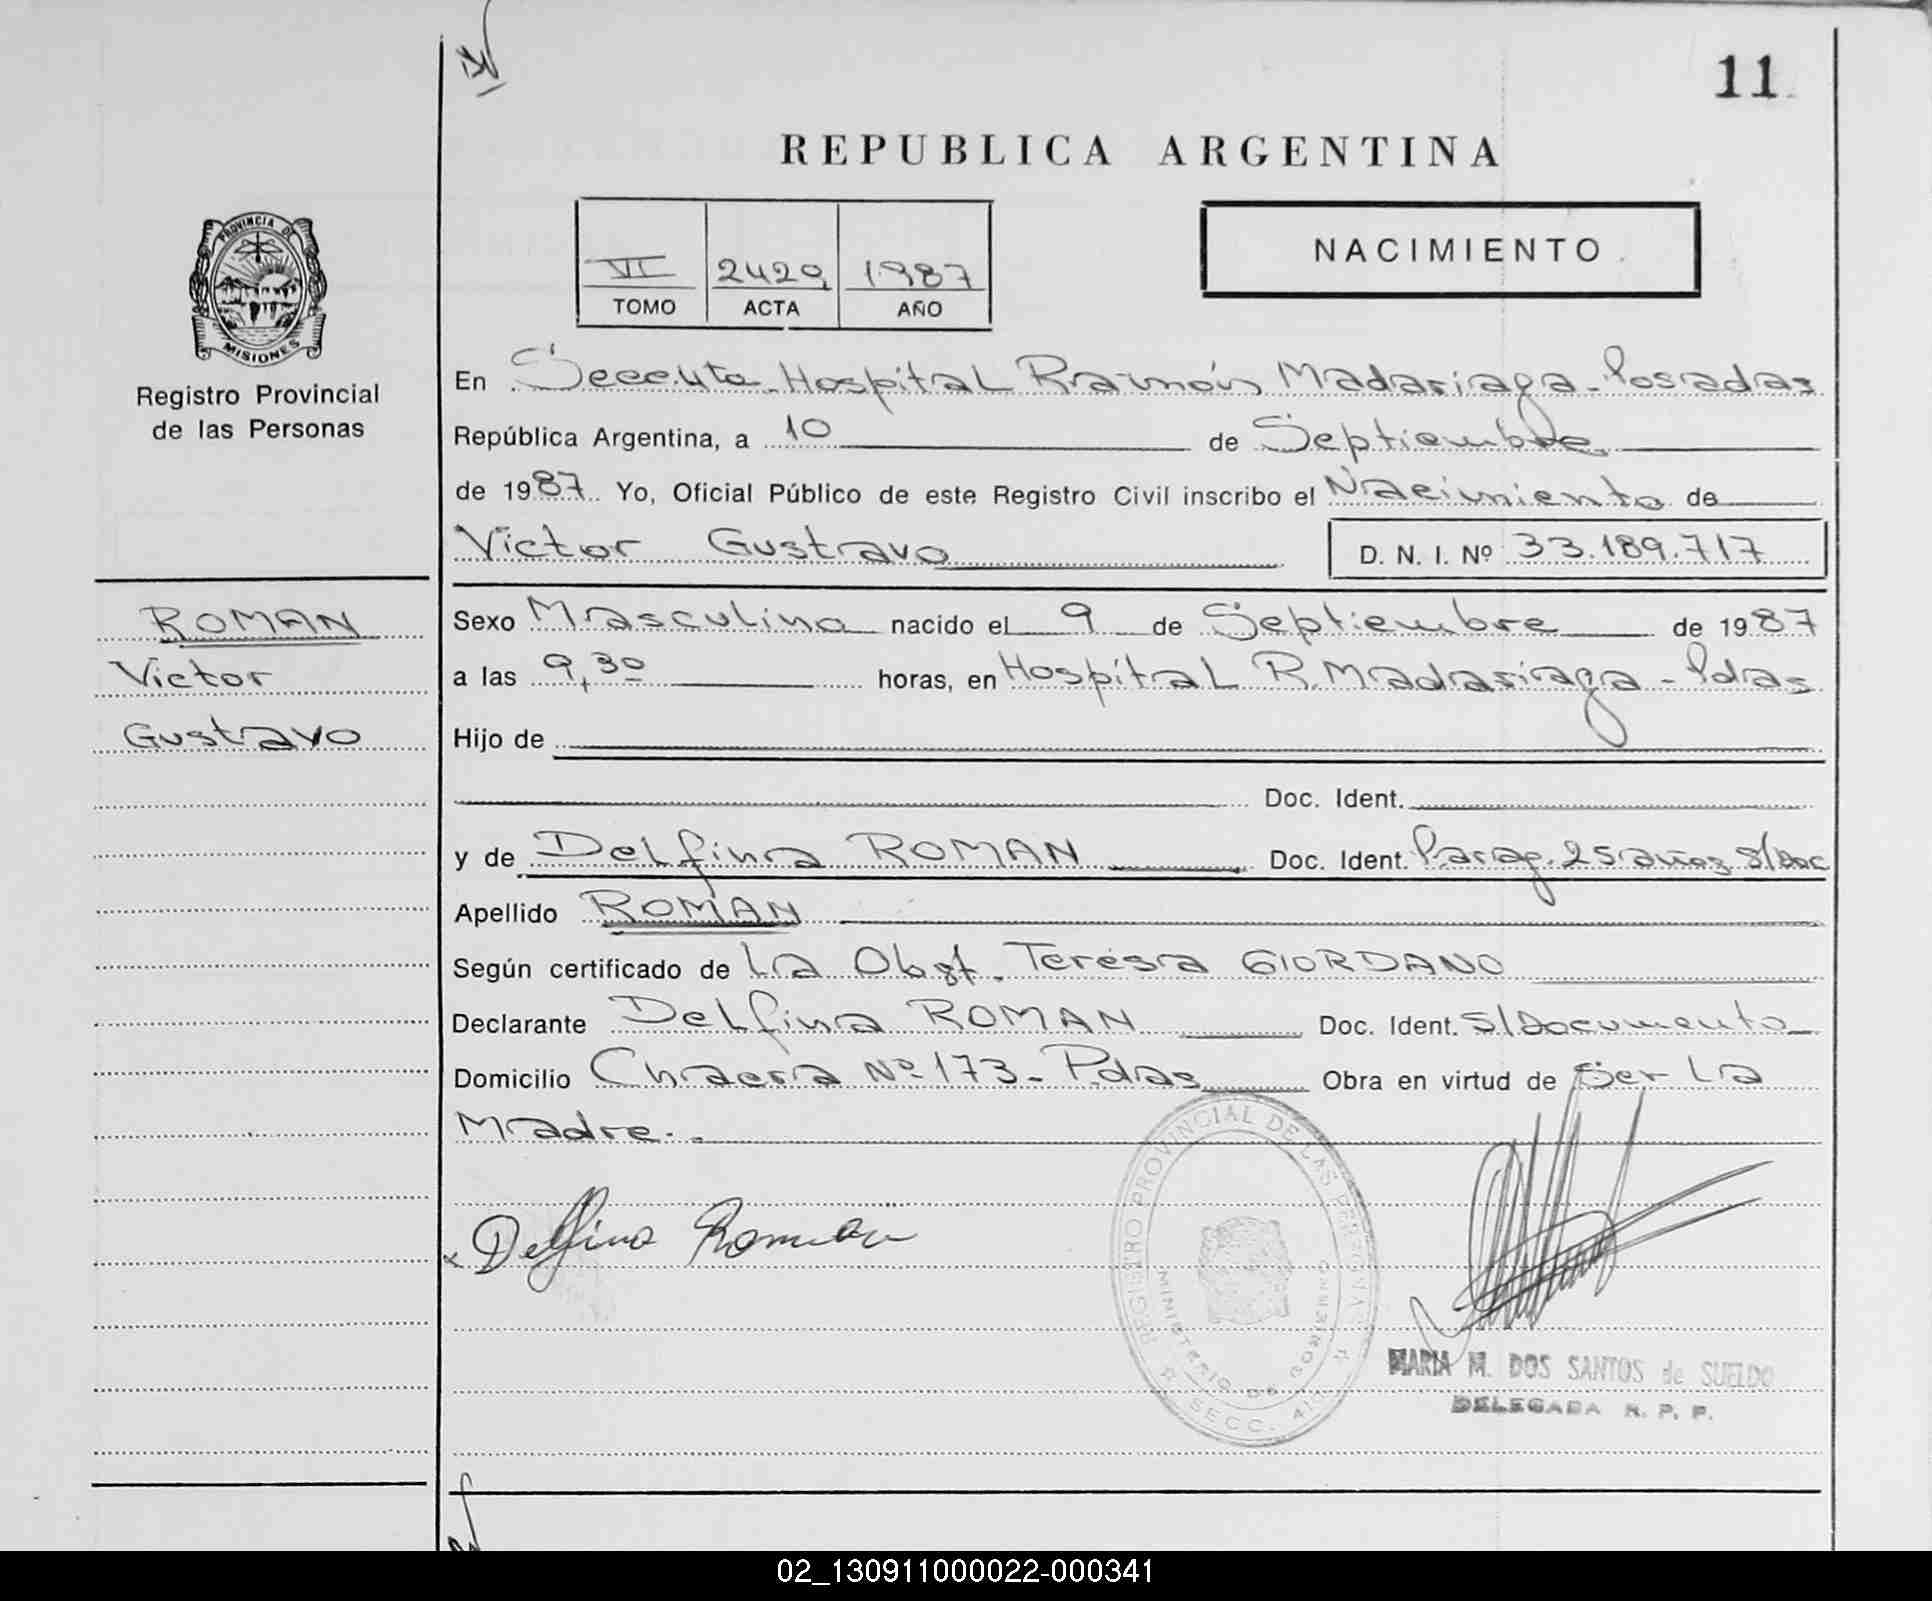 11
REPUBLICA ARGENTINA
PROVINCIA DE
MISIONES
Registro Provincial
de las Personas
VI 2429 1987
TOMO ACTA AÑO
NACIMIENTO
En Hospital Ramón Madariaga - Posadas
República Argentina, a 10 de Septiembre
de 1987 Yo, Oficial Público de este Registro Civil inscribo el Nacimiento de
Victor Gustavo D. N. I. Nº 33.189.717
ROMAN
Victor
Gustavo
Sexo Masculino nacido el 9 de Septiembre de 1987
a las 9,30 horas, en Hospital R. Madariaga - Pdas
Hijo de
Doc. Ident.
y de Delfina ROMAN Doc. Ident. Parag. 25 años S/Doc
Apellido ROMAN
Según certificado de La Obst. Teresa GIORDANO
Declarante Delfina ROMAN Doc. Ident. S/Documento
Domicilio Chacra Nº 173 - Pdas Obra en virtud de Ser La
Madre.
Delfina Roman
REGISTRO PROVINCIAL DE LAS PERSONAS
MINISTERIO DE GOBIERNO
SECC.
MARIA M. DOS SANTOS de SUELDO
DELEGADA R. P. P.
02_130911000022-000341